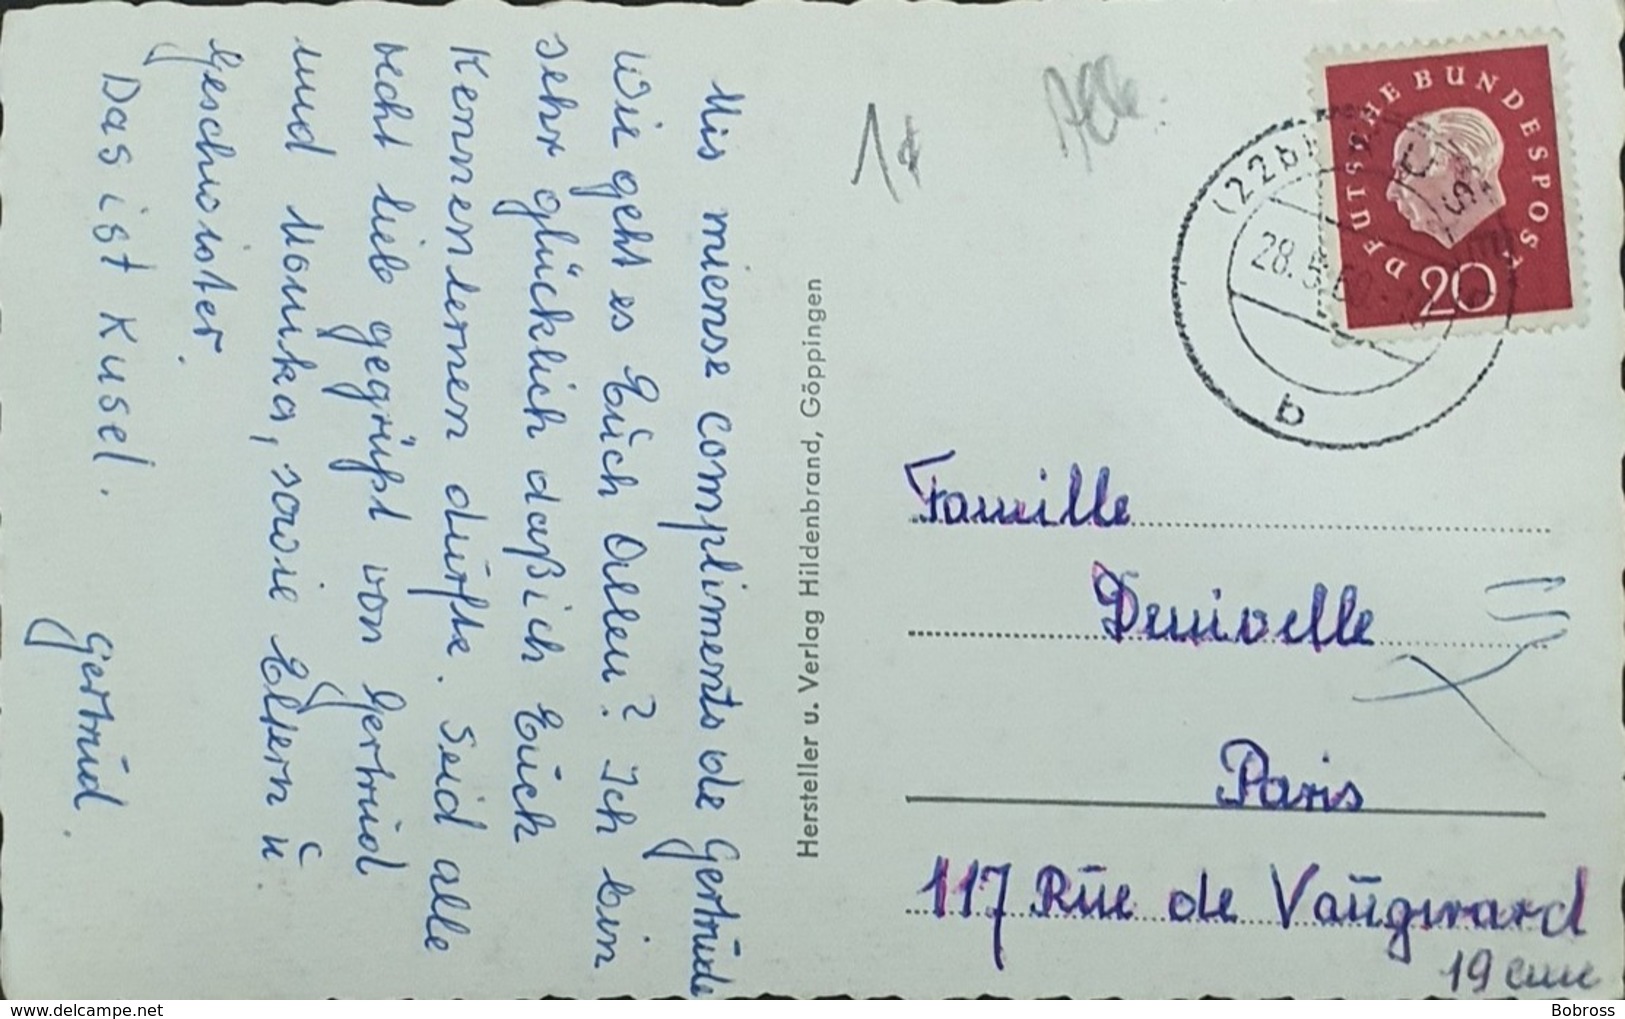 Mis miense compliments de Gertrude
Wie geht es Euch Allen? Ich bin
sehr glücklich daß ich Euch
Kennenlernen dürfte. Seid alle
recht lieb gegrüßt von Gertrud
und Monika, sowie Eltern u.
Geschwister.
Das ist Kusel.
Gertrud.
Hersteller u. Verlag Hildenbrand, Göppingen
DEUTSCHE BUNDESPOST
20
(22b)
28.5.60
b
Famille
Denivelle
Paris
117 Rue de Vaugirard
19 eme
Bobross